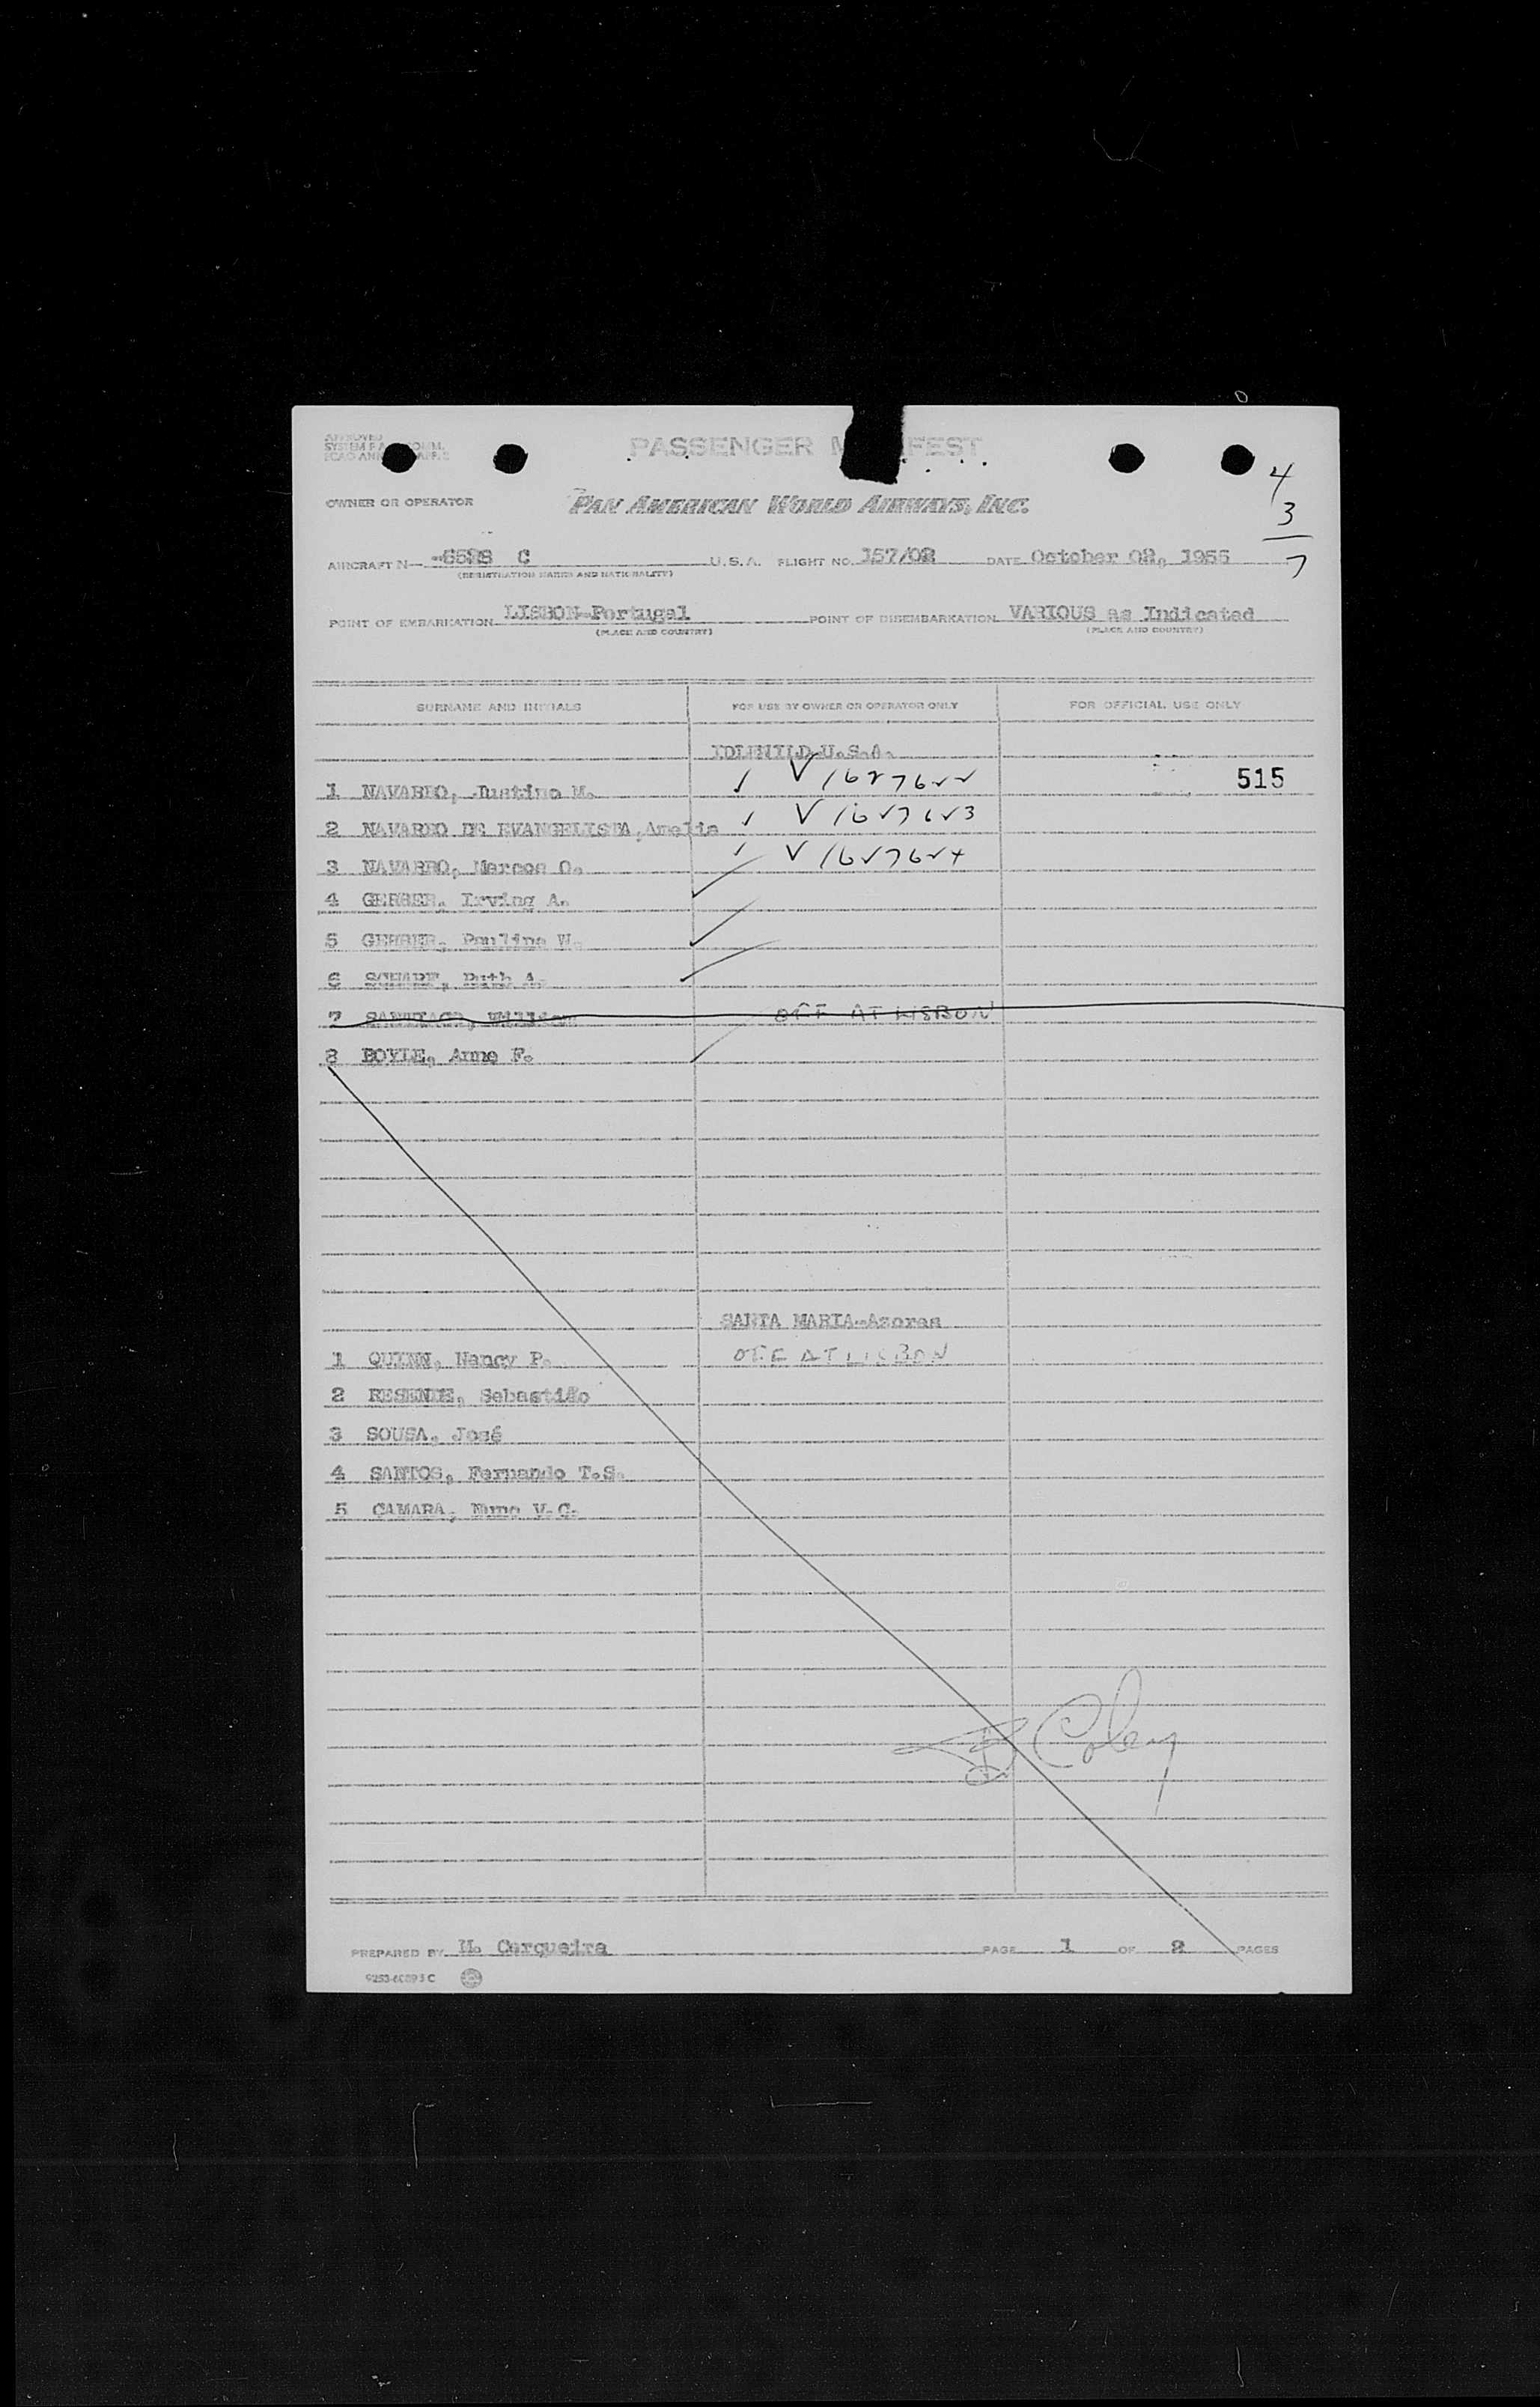 APPROVED
PASSENGER M FEST
4
OWNER OR OPERATOR PAN AMERICAN WORLD AIRWAYS, INC.
3
AIRCRAFT N— C U.S.A. FLIGHT NO. 157/02 DATE October 02, 1955
7
(REGISTRATION MARKS AND NATIONALITY)
POINT OF EMBARKATION LISBON-Portugal POINT OF DISEMBARKATION VARIOUS as Indicated
(PLACE AND COUNTRY) (PLACE AND COUNTRY)
SURNAME AND INITIALS FOR USE BY OWNER OR OPERATOR ONLY FOR OFFICIAL USE ONLY
IDLEWILD-U.S.A.
1 NAVARRO, Justino M. V 1627622 515
2 NAVARRO DE EVANGELISTA, Amelia V 1627623
3 NAVARRO, Marcos O. V 1627624
4 GERBER, Irving A.
5 GERBER, Pauline W.
6 SCHARF, Ruth A.
7 SANTIAGO, William OFF AT LISBON
8 BOYLE, Anne F.
SANTA MARIA-Azores
1 QUINN, Nancy P. OFF AT LISBON
2 RESENDE, Sebastião
3 SOUSA, José
4 SANTOS, Fernando T.S.
5 CAMARA, Nuno V.C.
Coley
PREPARED BY Cerqueira PAGE 1 OF 2 PAGES